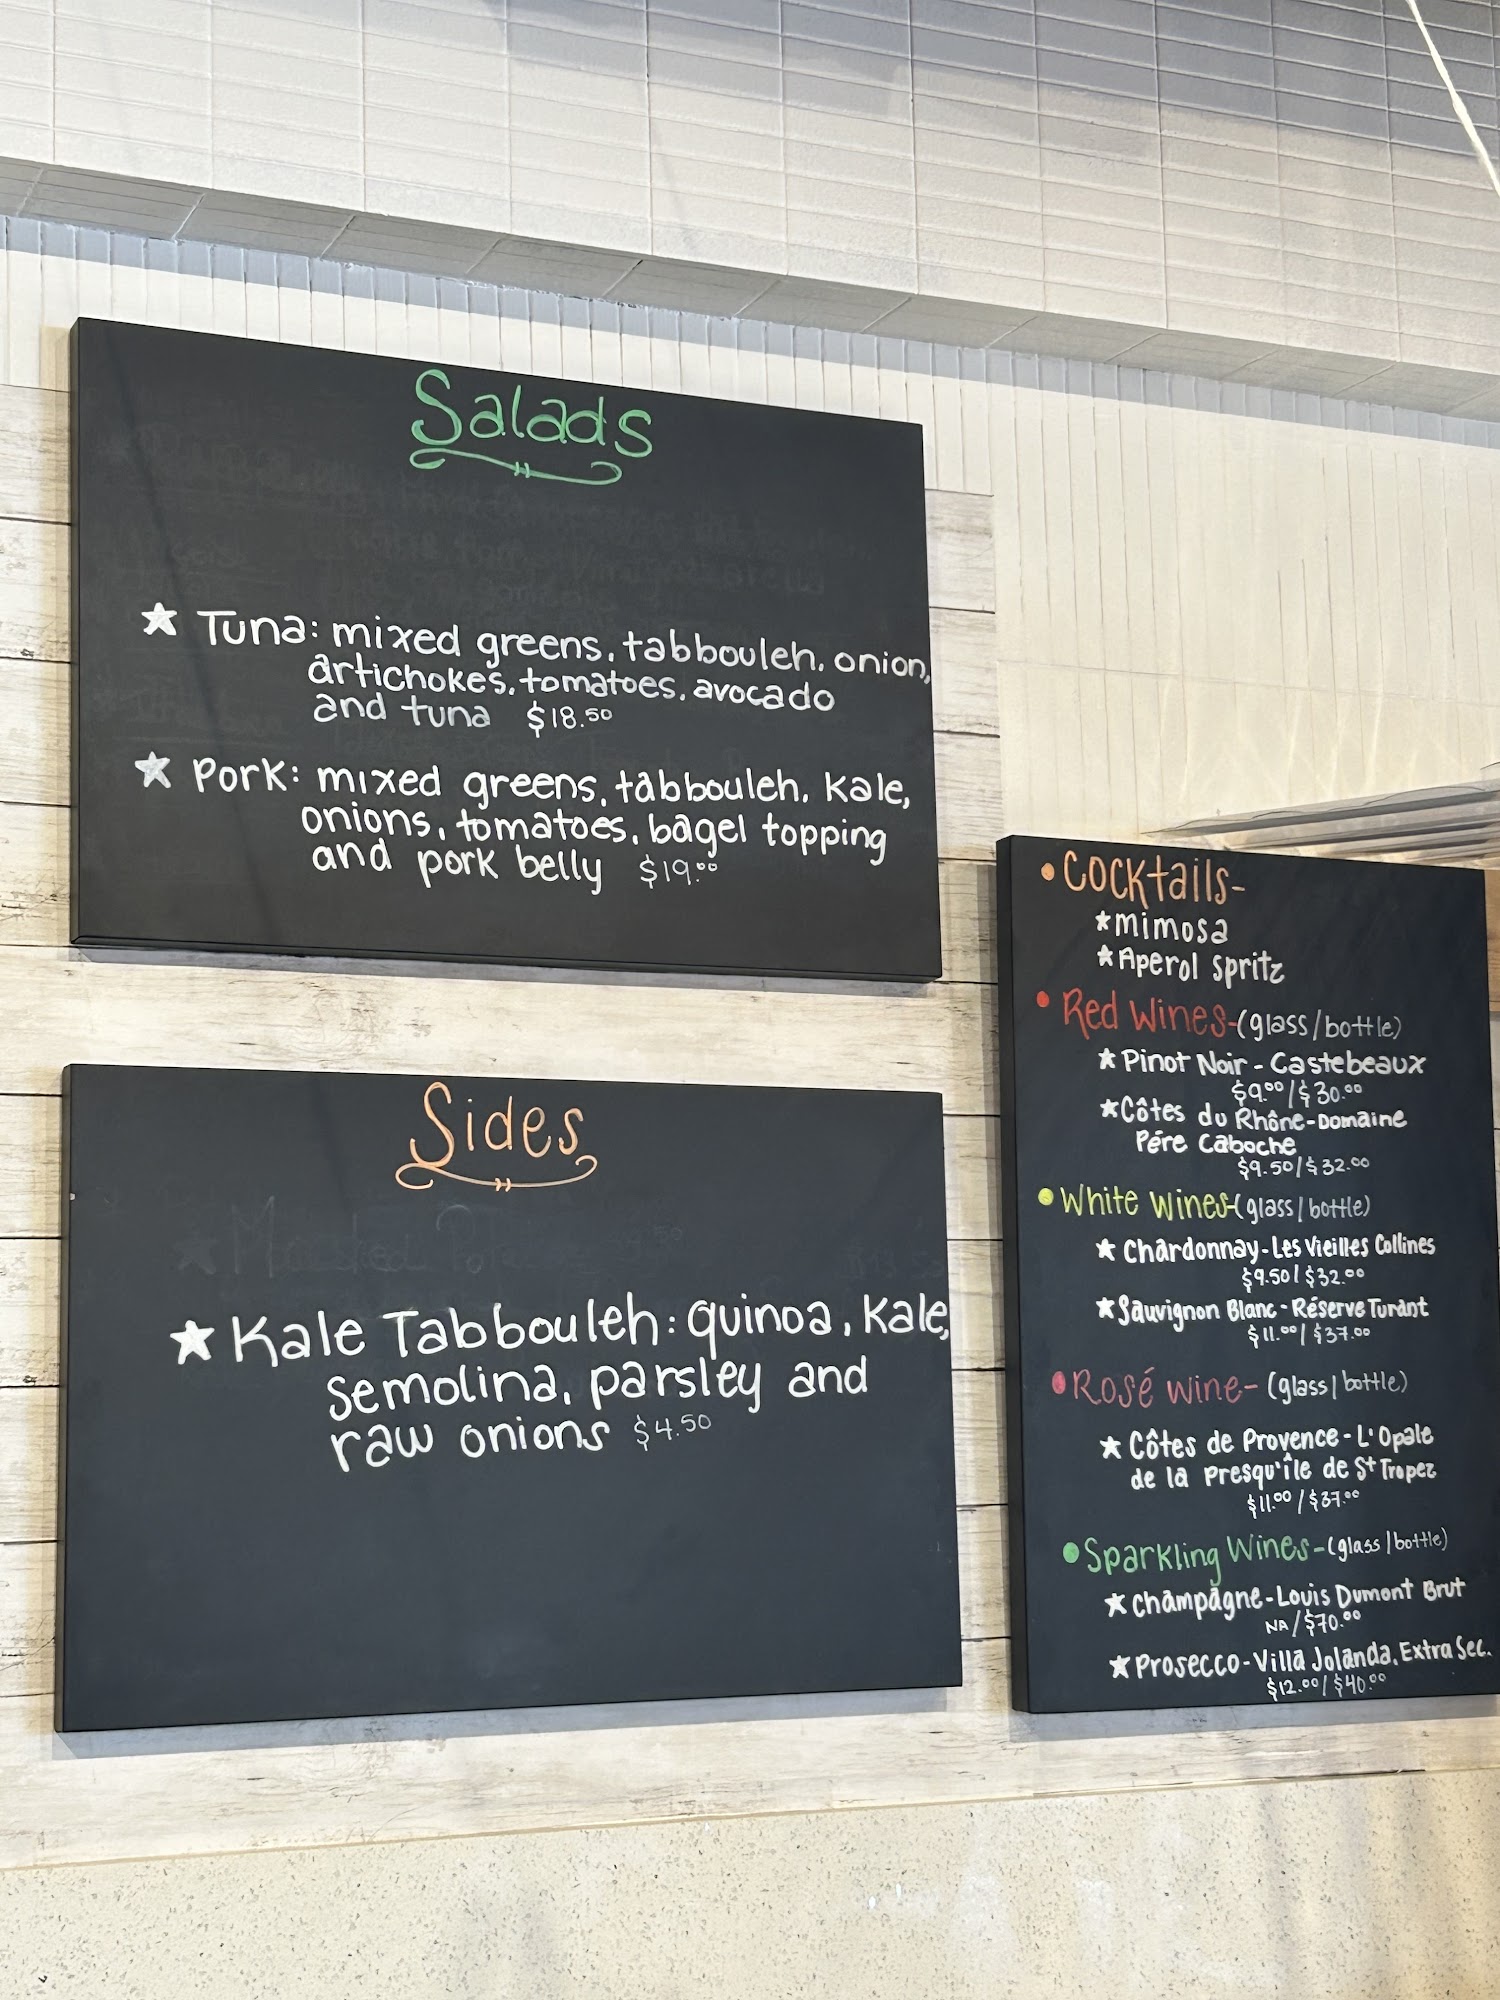 Salads
★ Tuna: mixed greens, tabbouleh, onion,
artichokes, tomatoes, avocado
and tuna $18.50
★ Pork: mixed greens, tabbouleh, Kale,
onions, tomatoes, bagel topping
and pork belly $19.00
Sides
★ Kale Tabbouleh: quinoa, Kale,
semolina, parsley and
raw onions $4.50
• Cocktails-
★ Mimosa
★ Aperol Spritz
• Red Wines-(glass/bottle)
★ Pinot Noir - Castebeaux
$9.00/$30.00
★ Côtes du Rhône-Domaine
Pére Caboche
$9.50/$32.00
• White Wines-(glass/bottle)
★ Chardonnay-Les Vieilles Collines
$9.50/$32.00
★ Sauvignon Blanc - Réserve Turant
$11.00/$37.00
• Rosé Wine- (glass/bottle)
★ Côtes de Provence - L'Opale
de la Presqu'île de St Tropez
$11.00/$37.00
• Sparkling Wines-(glass/bottle)
★ Champagne-Louis Dumont Brut
NA/$70.00
★ Prosecco-Villa Jolanda, Extra Sec.
$12.00/$40.00